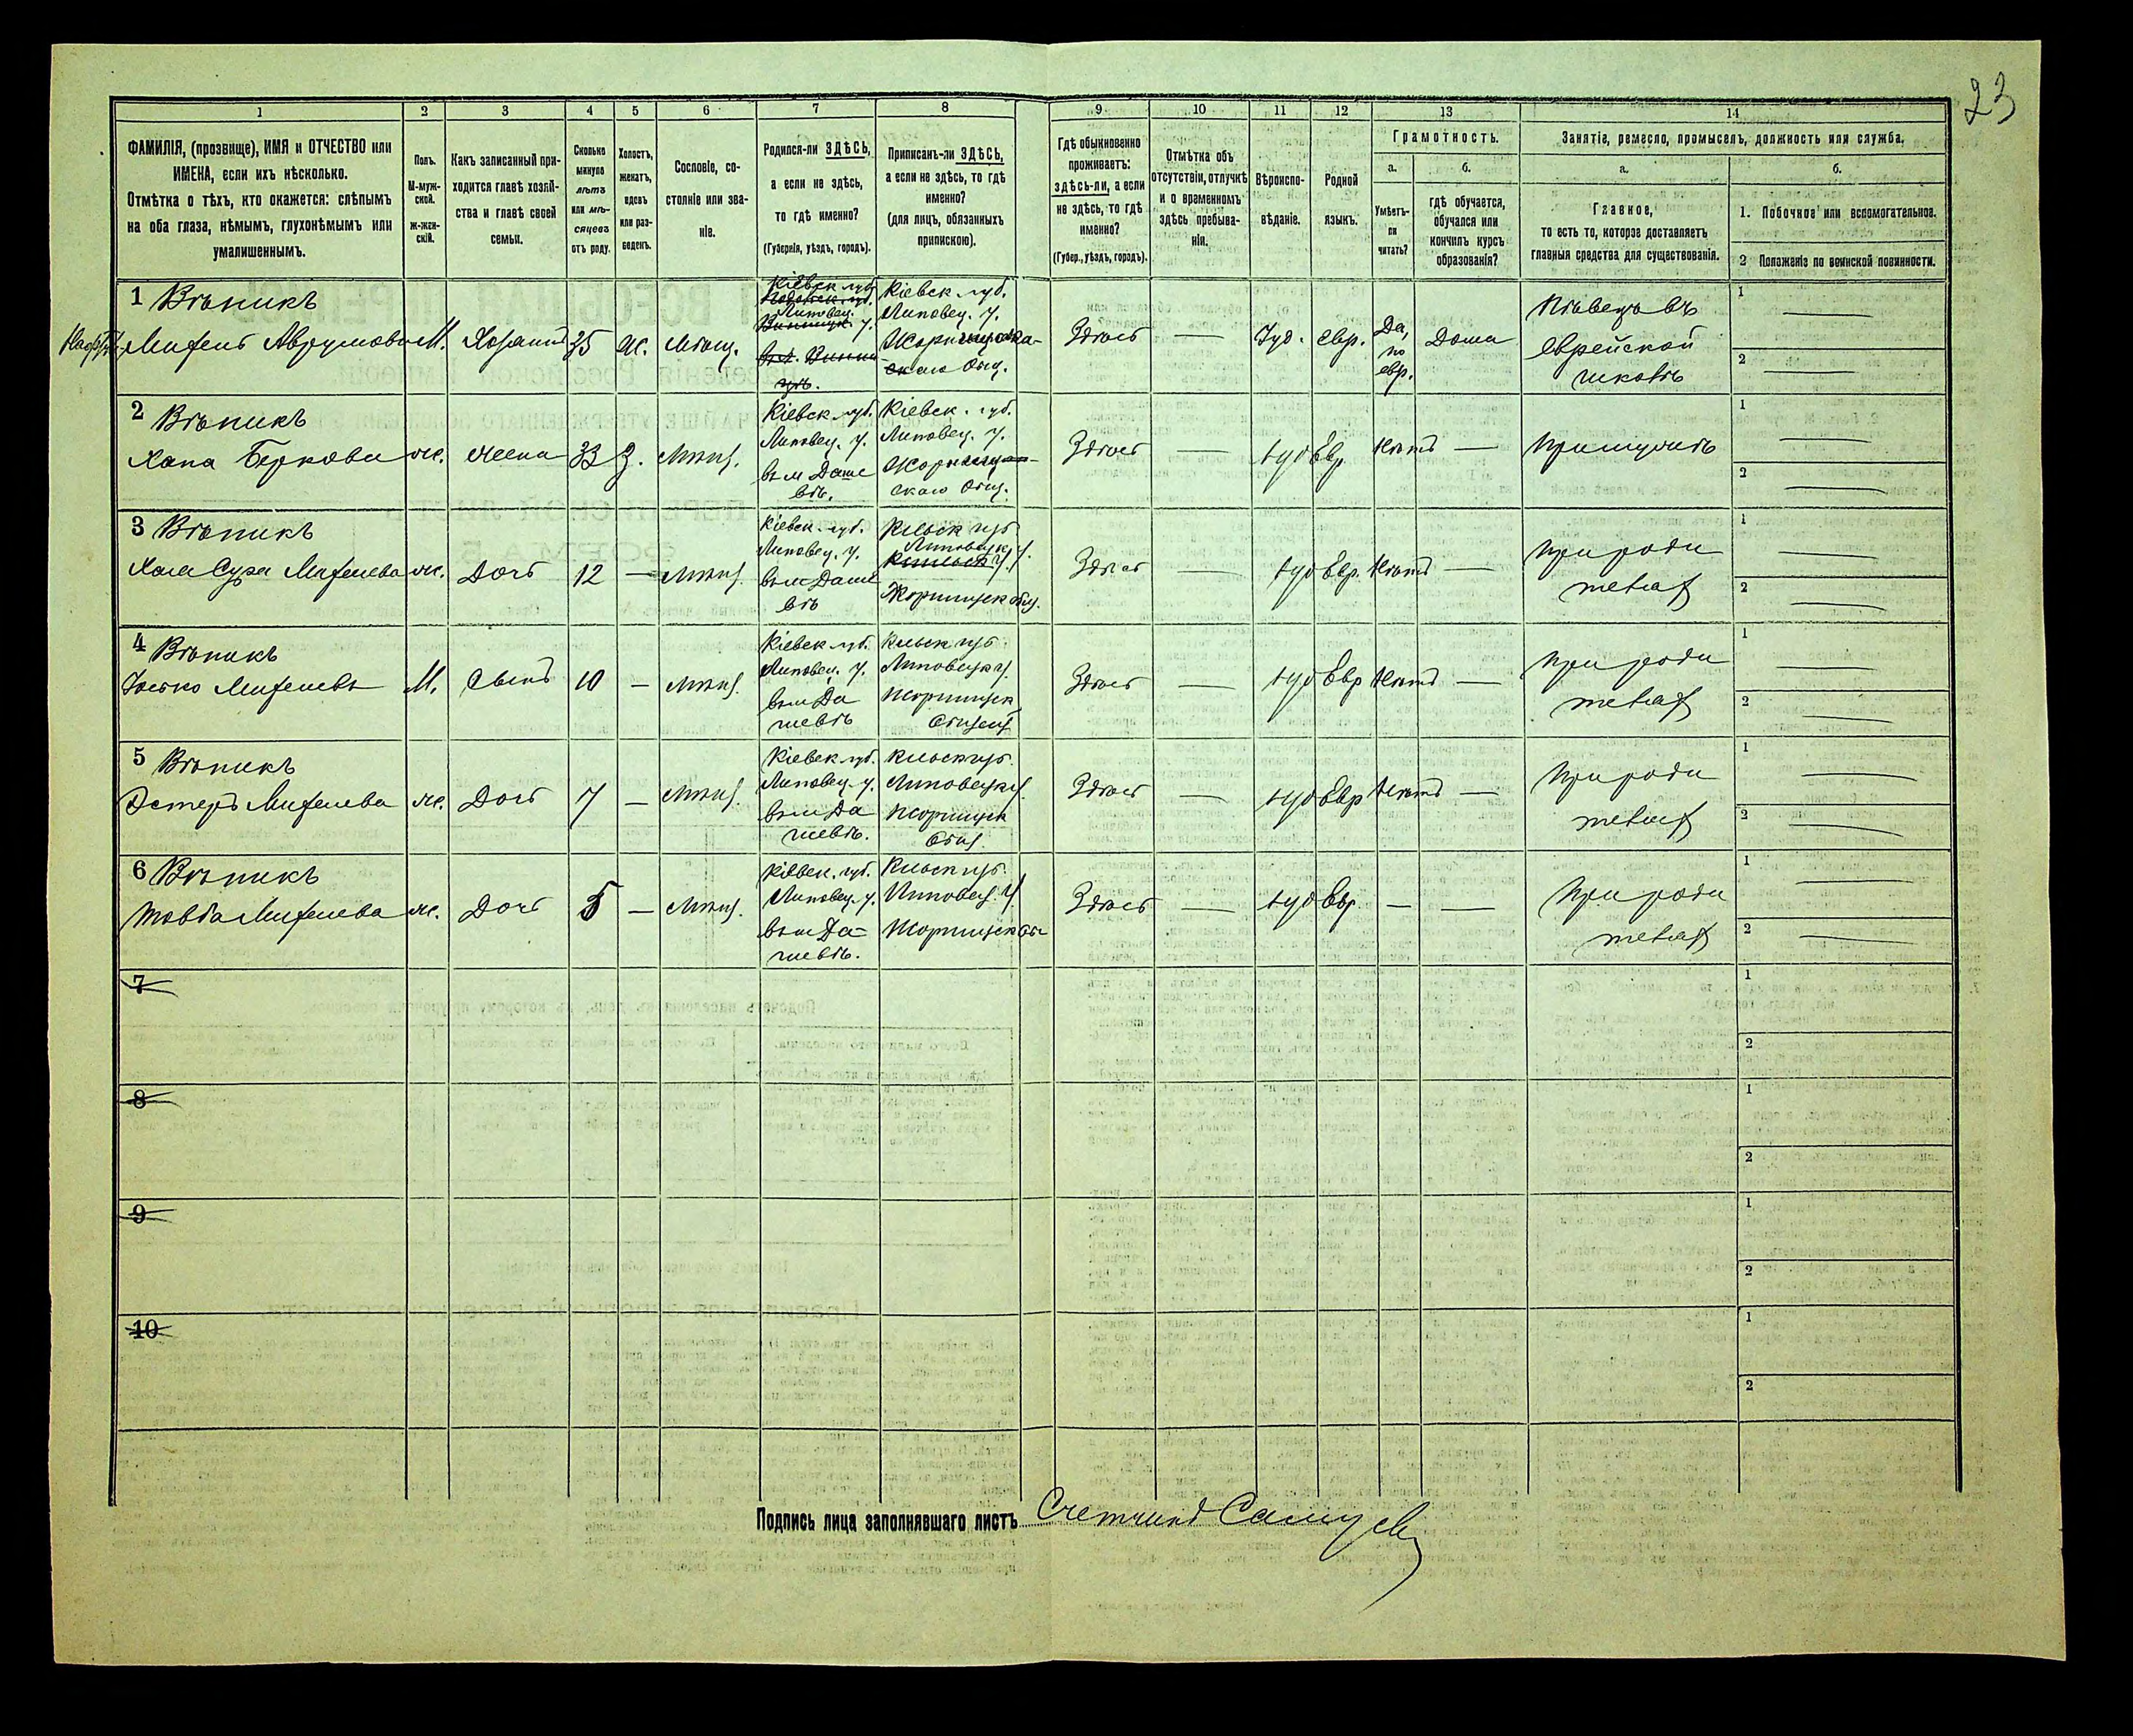 23
1
2
3
4
5
6
7
8
9
10
11
12
13
14
ФАМИЛІЯ, (прозвище), ИМЯ и ОТЧЕСТВО или
ИМЕНА, если ихъ нѣсколько.
Отмѣтка о тѣхъ, кто окажется: слѣпымъ
на оба глаза, нѣмымъ, глухонѣмымъ или
умалишеннымъ.
Полъ.
М-муж-
ской.
ж-жен-
скій.
Какъ записанный при-
ходится главѣ хозяй-
ства и главѣ своей
семьи.
Сколько
минуло
лѣтъ
или мѣ-
сяцевъ
отъ роду.
Холостъ,
женатъ,
вдовъ
или раз-
веденъ.
Сословіе, со-
стояніе или зва-
ніе.
Родился-ли ЗДѢСЬ,
а если не здѣсь,
то гдѣ именно?
(Губернія, уѣздъ, городъ).
Приписанъ-ли ЗДѢСЬ,
а если не здѣсь, то гдѣ
именно?
(для лицъ, обязанныхъ
припискою).
Гдѣ обыкновенно
проживаетъ:
здѣсь-ли, а если
не здѣсь, то гдѣ
именно?
(Губер., уѣздъ, городъ).
Отмѣтка объ
отсутствіи, отлучкѣ
и о временномъ
здѣсь пребыва-
ніи.
Вѣроиспо-
вѣданіе.
Родной
языкъ.
Грамотность.
а.
Умѣетъ-
ли
читать?
б.
гдѣ обучается,
обучался или
кончилъ курсъ
образованія?
Занятіе, ремесло, промыселъ, должность или служба.
а.
Главное,
то есть то, которое доставляетъ
главныя средства для существованія.
б.
1. Побочное или вспомогательное.
2 Положеніе по воинской повинности.
1 Вѣпикъ
М.
Хозяинъ
35
Ж.
Мѣщ.
Кіевск. губ.
Липовец. у.
Кіевск. губ.
Липовец. у.
Здѣсь
—
Іуд.
Евр.
Да,
по
евр.
Дома
Пѣвецъ въ
Еврейской
школѣ
1 —
2 —
2 Вѣпикъ
Хана Беркова
ж.
жена
33
З.
Мѣщ.
Кіевск. губ.
Липовец. у.
въ м Даше
вѣ.
Кіевск. губ.
Липовец. у.
скаго Общ.
Здѣсь
—
іуд
Евр.
Нѣтъ
—
При мужѣ
1 —
2 —
3 Вѣпикъ
ж.
Дочь
12
—
Мѣщ.
Кіевск. губ.
Липовец. у.
въ м Даше
вѣ
Кіевск губ
Липовецк у.
Жорнищск общ.
Здѣсь
—
іуд
Евр.
Нѣтъ
—
При роди
теляхъ
1 —
2 —
4 Вѣпикъ
М.
Сынъ
10
—
Мѣщ.
Кіевск губ.
Липовец. у.
въ м Да
шевѣ
Кіевск губ.
Липовецк у.
Жорнищск
Здѣсь
—
іуд
Евр
Нѣтъ
—
При роди
теляхъ
1 —
2 —
5 Вѣпикъ
ж.
Дочь
7
—
Мѣщ.
Кіевск губ.
Липовец. у.
въ м Да
шевѣ.
Кіевск губ.
Липовецк у.
Жорнищск
Общ.
Здѣсь
—
іуд
Евр
Нѣтъ
—
При роди
теляхъ
1 —
2 —
6 Вѣпикъ
ж.
Дочь
5
—
Мѣщ.
Кіевск. губ.
Липовец. у.
въ м Да-
шевѣ.
Кіевск губ.
Липовец. у.
Жорнищск об
Здѣсь
—
іуд
Евр.
—
—
При роди
теляхъ
1 —
2 —
7
1
2
8
1
2
9
1
2
10
1
2
Подпись лица заполнявшаго листъ Счетчикъ